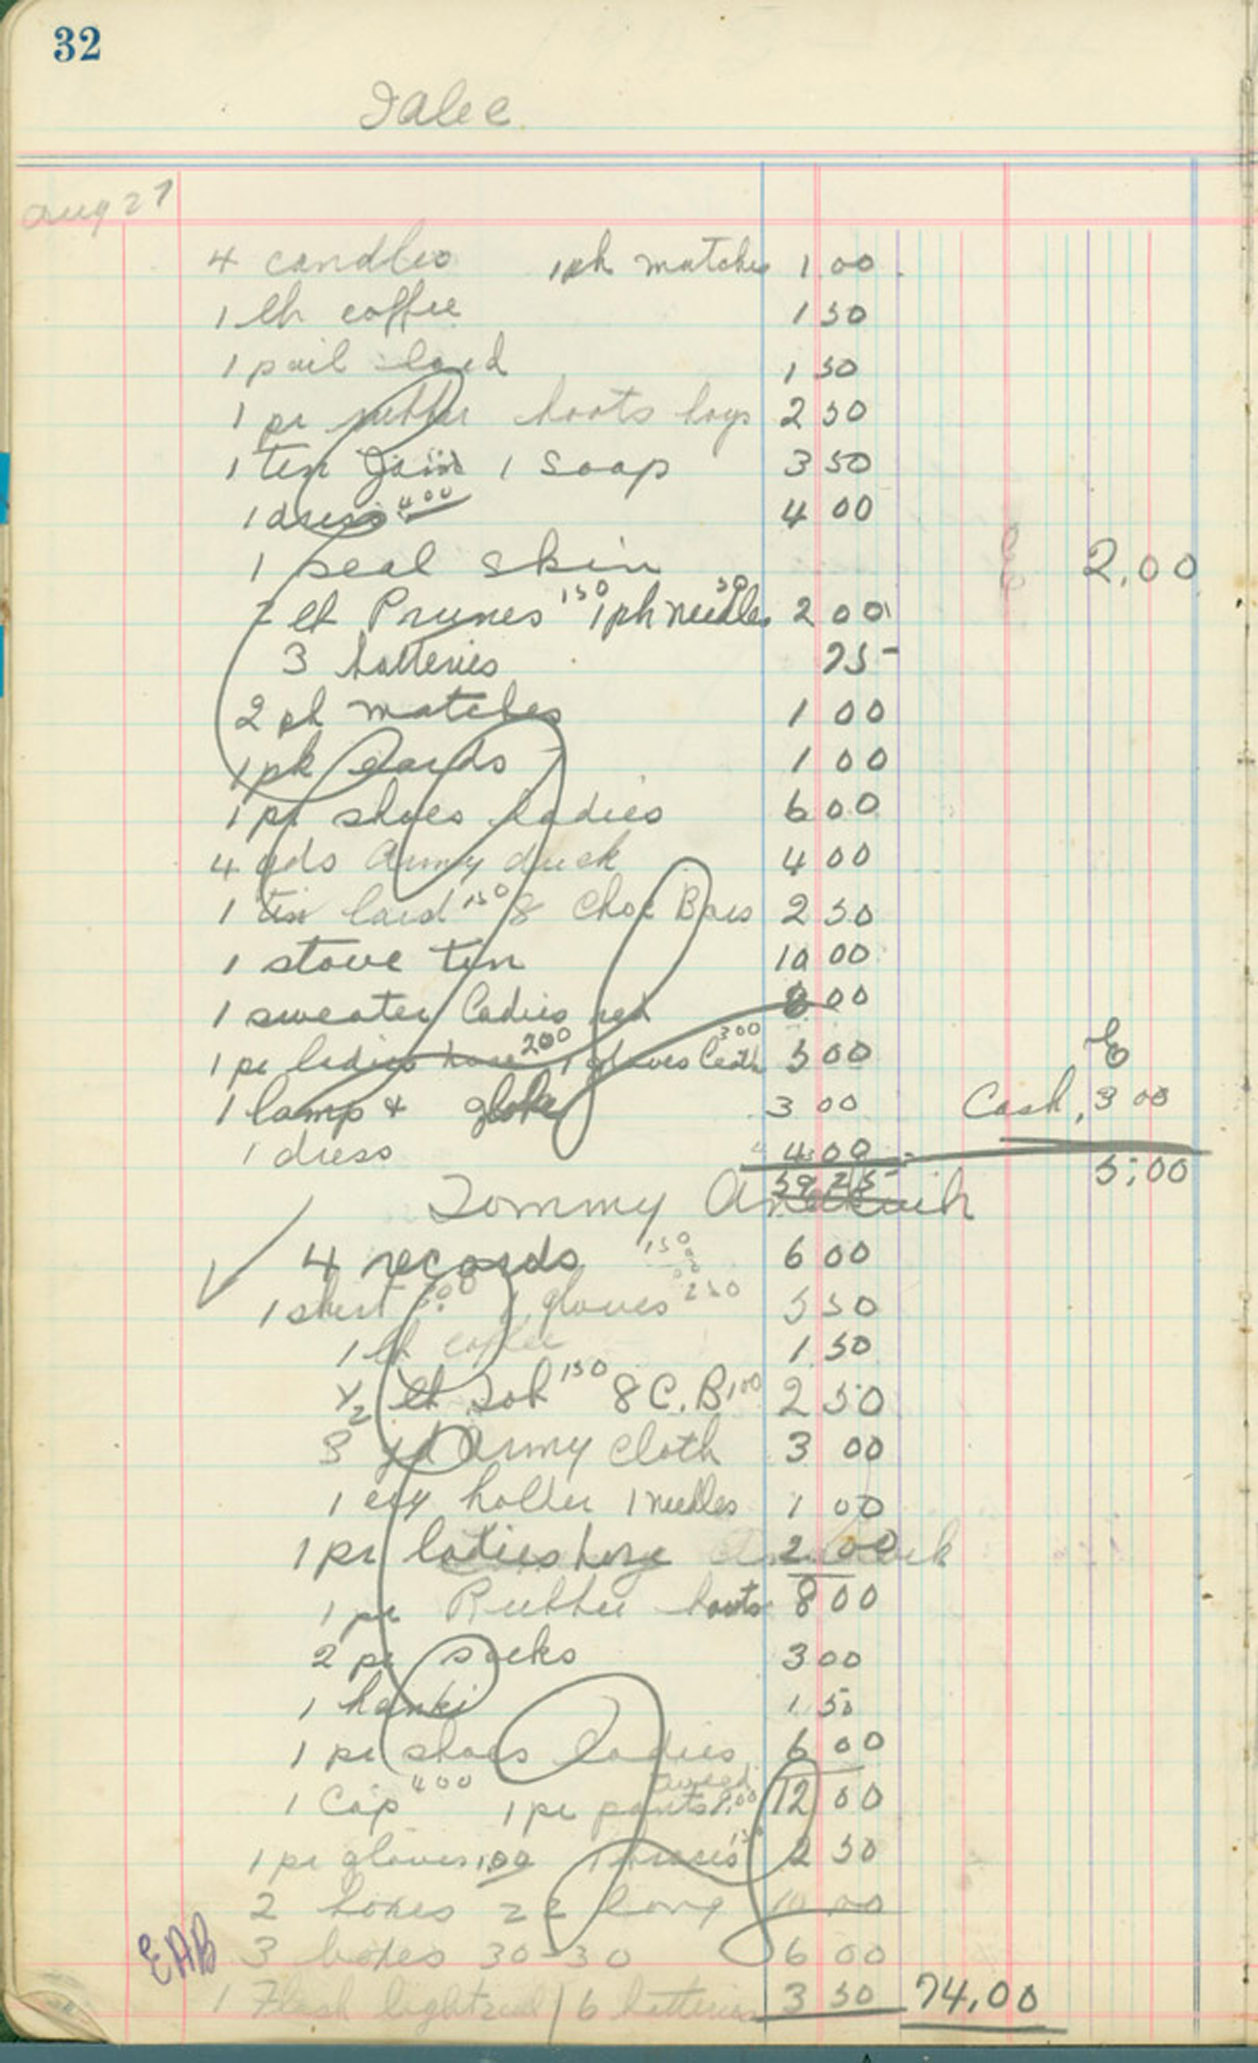 32
Ialee
Aug 27
4 candles 1 pk matches 1 00
1 lb coffee 1 50
1 pail lard 1 50
1 pr rubber boots boys 2 50
1 tin Jam 1 Soap 3 50
1 dress 4 00 4 00
1 seal skin 2.00
lb Prunes 1 50 1 pk needles 50 2 00
3 batteries 75
2 pk matches 1 00
1 pk Cards 1 00
1 pr shoes ladies 6 00
4 yds Army duck 4 00
1 tin lard 1 50 8 Choc Bars 2 50
1 stove tin 10 00
1 sweater Ladies red 8 00
1 pr ladies hose 2 00 1 gloves Leath 3 00 5 00
1 lamp & globe 3 00 Cash, 3 00
1 dress 4 00
59 25 5.00
Tommy
4 records 1 50 6 00
1 shirt 3 00 1 gloves 2 50 5 50
1 lb coffee 1 50
1/2 lb Tob 1 50 8 C.B 1 00 2 50
3 yd Army cloth 3 00
1 cig holder 1 needles 1 00
1 pr ladies hose 2 00
1 pr Rubber boots 8 00
2 pr socks 3 00
1 hanki 1 50
1 pr shoes ladies 6 00
1 Cap 4 00 1 pr pants 8.00 12 00
1 pr gloves 1 00 1 braces 1 50 2 50
2 boxes 22 long 10 00
EAB 3 boxes 30-30 6 00
1 Flash light red 6 batteries 3 50 74,00